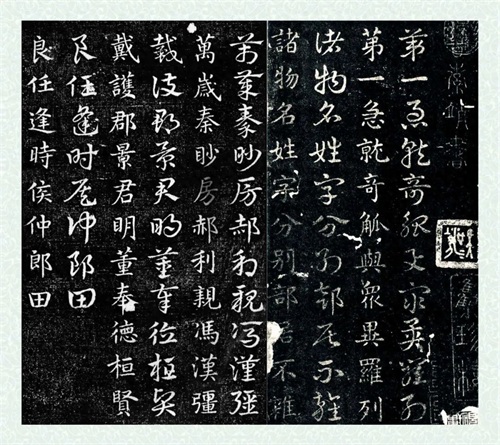 第一急就奇觚與衆異羅列
第一急就奇觚與衆異羅列
諸物名姓字分別部居不雜
諸物名姓字分別部居不雜
萬歲秦眇房郝利親馮漢彊
萬歲秦眇房郝利親馮漢彊
戴護郡景君明董奉德桓賢
戴護郡景君明董奉德桓賢
良任逢時侯仲郎田
良任逢時侯仲郎田